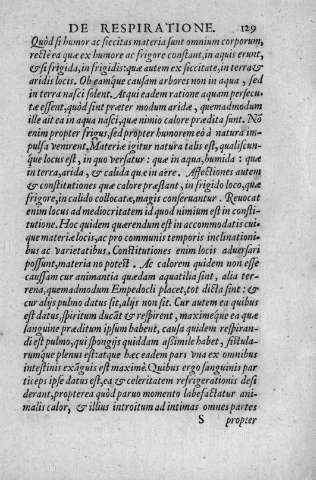 DE RESPIRATIONE. 129
Quòd si humor ac siccitas materia sunt omnium corporum,
rectè ea quæ ex humore ac frigore constant, in aquis erunt,
& si frigida, in frigidis: quæ autem ex siccitate, in terra &
aridis locis. Ob eamque causam arbores non in aqua, sed
in terra nasci solent. Atqui eadem ratione aquam persecu-
tæ essent, quòd sint præter modum aridæ, quemadmodum
ille ait ea in aqua nasci, quæ nimio calore prædita sunt. Nõ
enim propter frigus, sed propter humorem eò à natura im-
pulsa venirent, Materiæ igitur natura talis est, qualiscun-
que locus est, in quo versatur: quæ in aqua, humida: quæ
in terra, arida, & calida quæ in aëre. Affectiones autem
& constitutiones quæ calore præstant, in frigido loco, quæ
frigore, in calido collocatæ, magis conseruantur. Reuocat
enim locus ad mediocritatem id quod nimium est in consti-
tutione. Hoc quidem quærendum est in accommodatis cui-
que materiæ locis, ac pro communis temporis inclinationi-
bus ac varietatibus. Constitutiones enim locis aduersari
possunt, materia no potest. Ac calorem quidem non esse
caussam cur animantia quædam aquatilia sint, alia ter-
rena, quemadmodum Empedocli placet, tot dicta sint: &
cur alijs pulmo datus sit, alijs non sit. Cur autem ea quibus
est datus, spiritum ducãt & respirent, maximéque ea quæ
sanguine præditum ipsum habent, causa quidem respiran-
di est pulmo, qui spongijs quiddam assimile habet, fistula-
rumque plenus est: atque hæc eadem pars vna ex omnibus
intestinis exãguis est maximè. Quibus ergo sanguinis par
ticeps ipse datus est, ea & celeritatem refrigerationis desi
derant, propterea quòd paruo momento labefactatur ani-
malis calor, & illius introitum ad intimas omnes partes
S propter